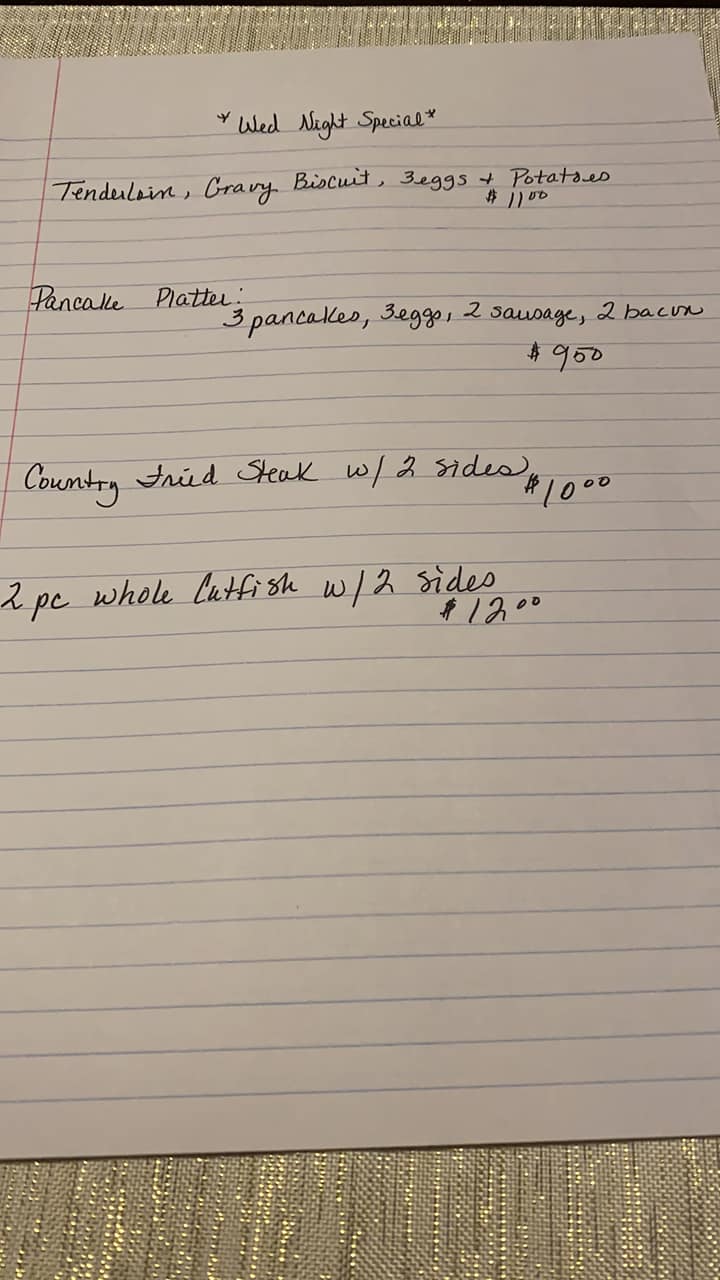 *Wed Night Special*
Tenderloin, Gravy Biscuit, 3eggs + Potatoes
$ 11 00
Pancake Platter:
3 pancakes, 3eggs, 2 sausage, 2 bacon
$ 950
Country Fried Steak w/ 2 sides
$10 00
2 pc whole Catfish w/2 sides
$12 00